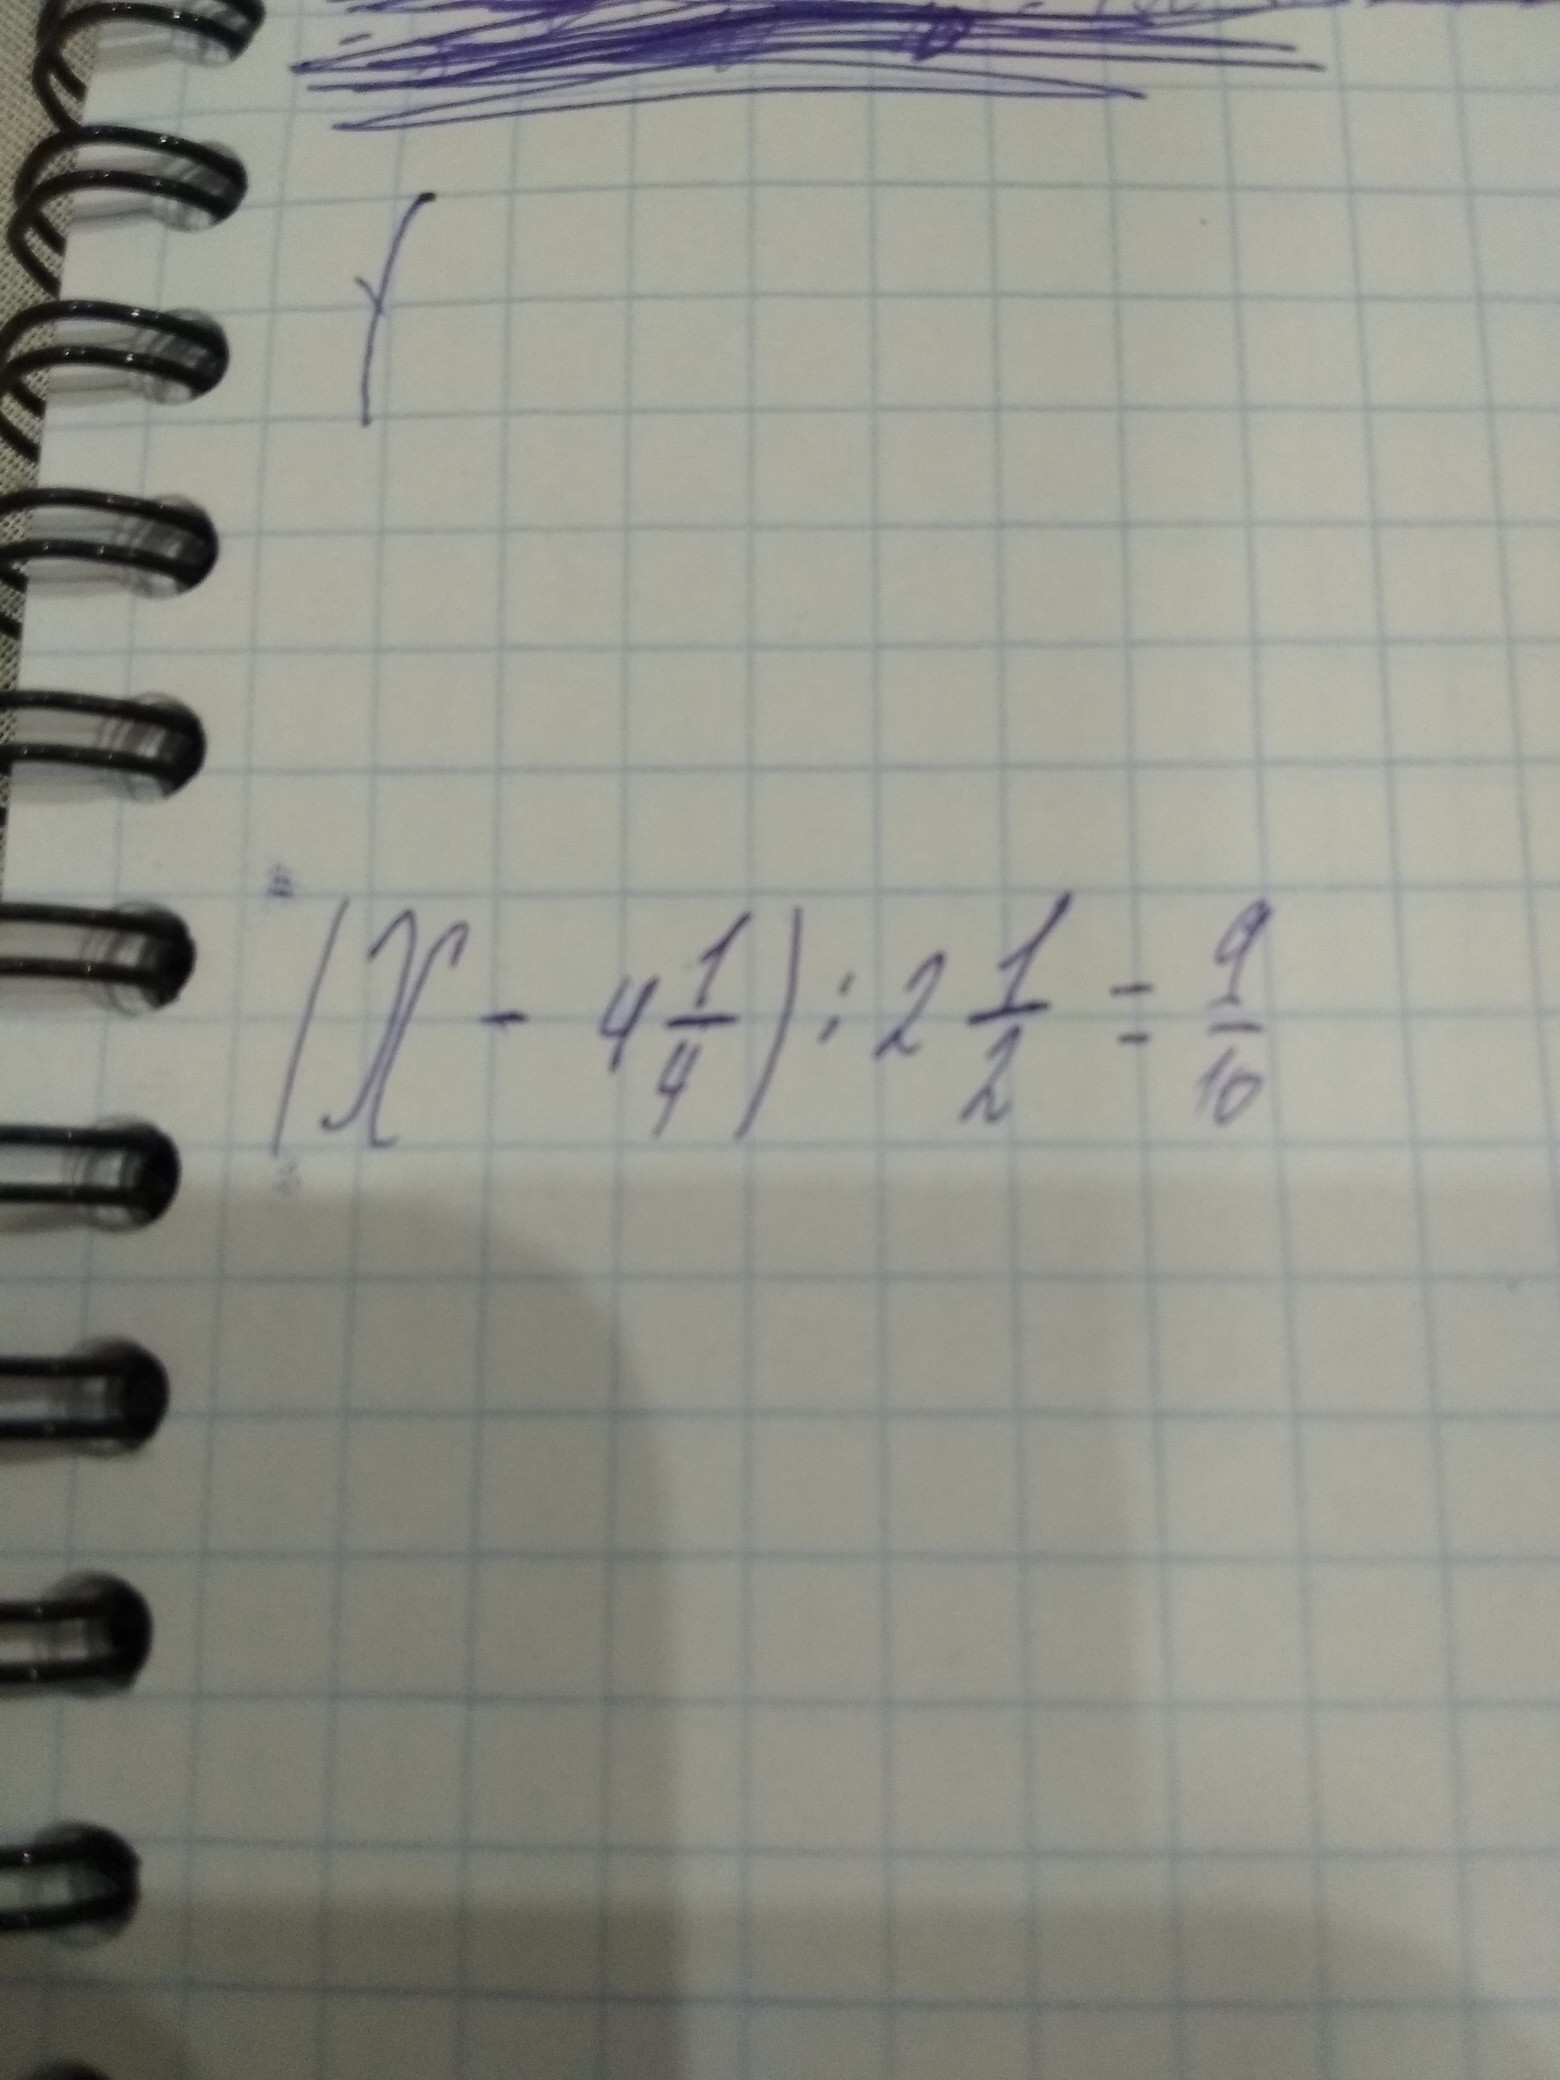 (X - 4 1/4) : 2 1/2 = 9/10